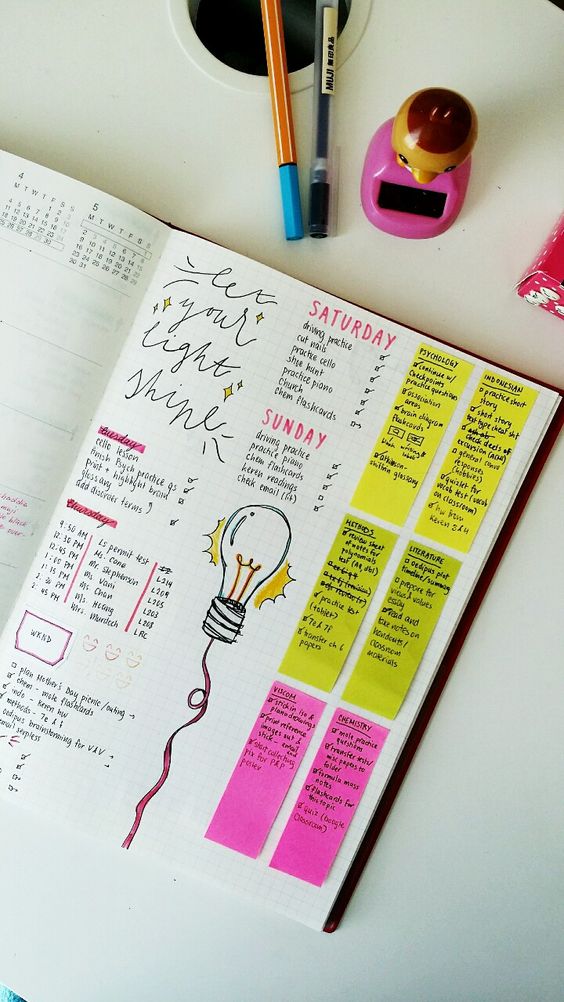 MUJI 無印良品
4
M T W T F S S
5
M T W T F S S
let
your
light
shine
SATURDAY
driving practice
cut nails
practice cello
shoe hunt
practice piano
church
chem flashcards
SUNDAY
driving practice
practice piano
chem flashcards
keren readings
check email (lit)
tuesday
cello lesson
finish psych practice qs
print + highlight braid
glossary
add discover terms
thursday
9:50 AM LS permit test L214
12:30 PM Ms. Cane L209
12:45 PM Mr Stephenson L205
Ms Vani L203
Ms Chan L208
Ms Hoang LRC
2:45 PM Mrs Murdoch
WKND
plan Mother's Day picnic/outing
chem - mole flashcards
indo - keren hw
methods - 7e & f
oedipus brainstorming for V&V
email serpless
PSYCHOLOGY
continue w/
checkpoints
practice questions
association
areas
brain diagram
flashcards
glossary
INDONESIAN
practice short
story
short story
text type cheat sht
check deets of
excursion
general convo
responses
(hobbies)
quizlet for
verb test (vocab
on classroom)
hw from
keren 2 & 4
METHODS
review sheet
of notes for
polynomials
test
practice test
(tablet)
7e & 7f
transfer ch 6
papers
LITERATURE
oedipus plot
timeline/summary
prepare for
views/values
essay
read and
take notes on
handouts/
classroom
materials
VISCOM
piano drawings
print reference
images out &
stick
start collecting
pix for P&P
poster
CHEMISTRY
mole practice
questions
transfer tests/
misc papers to
folder
formula mass
notes
flashcards for
this topic
quiz (google
classroom)